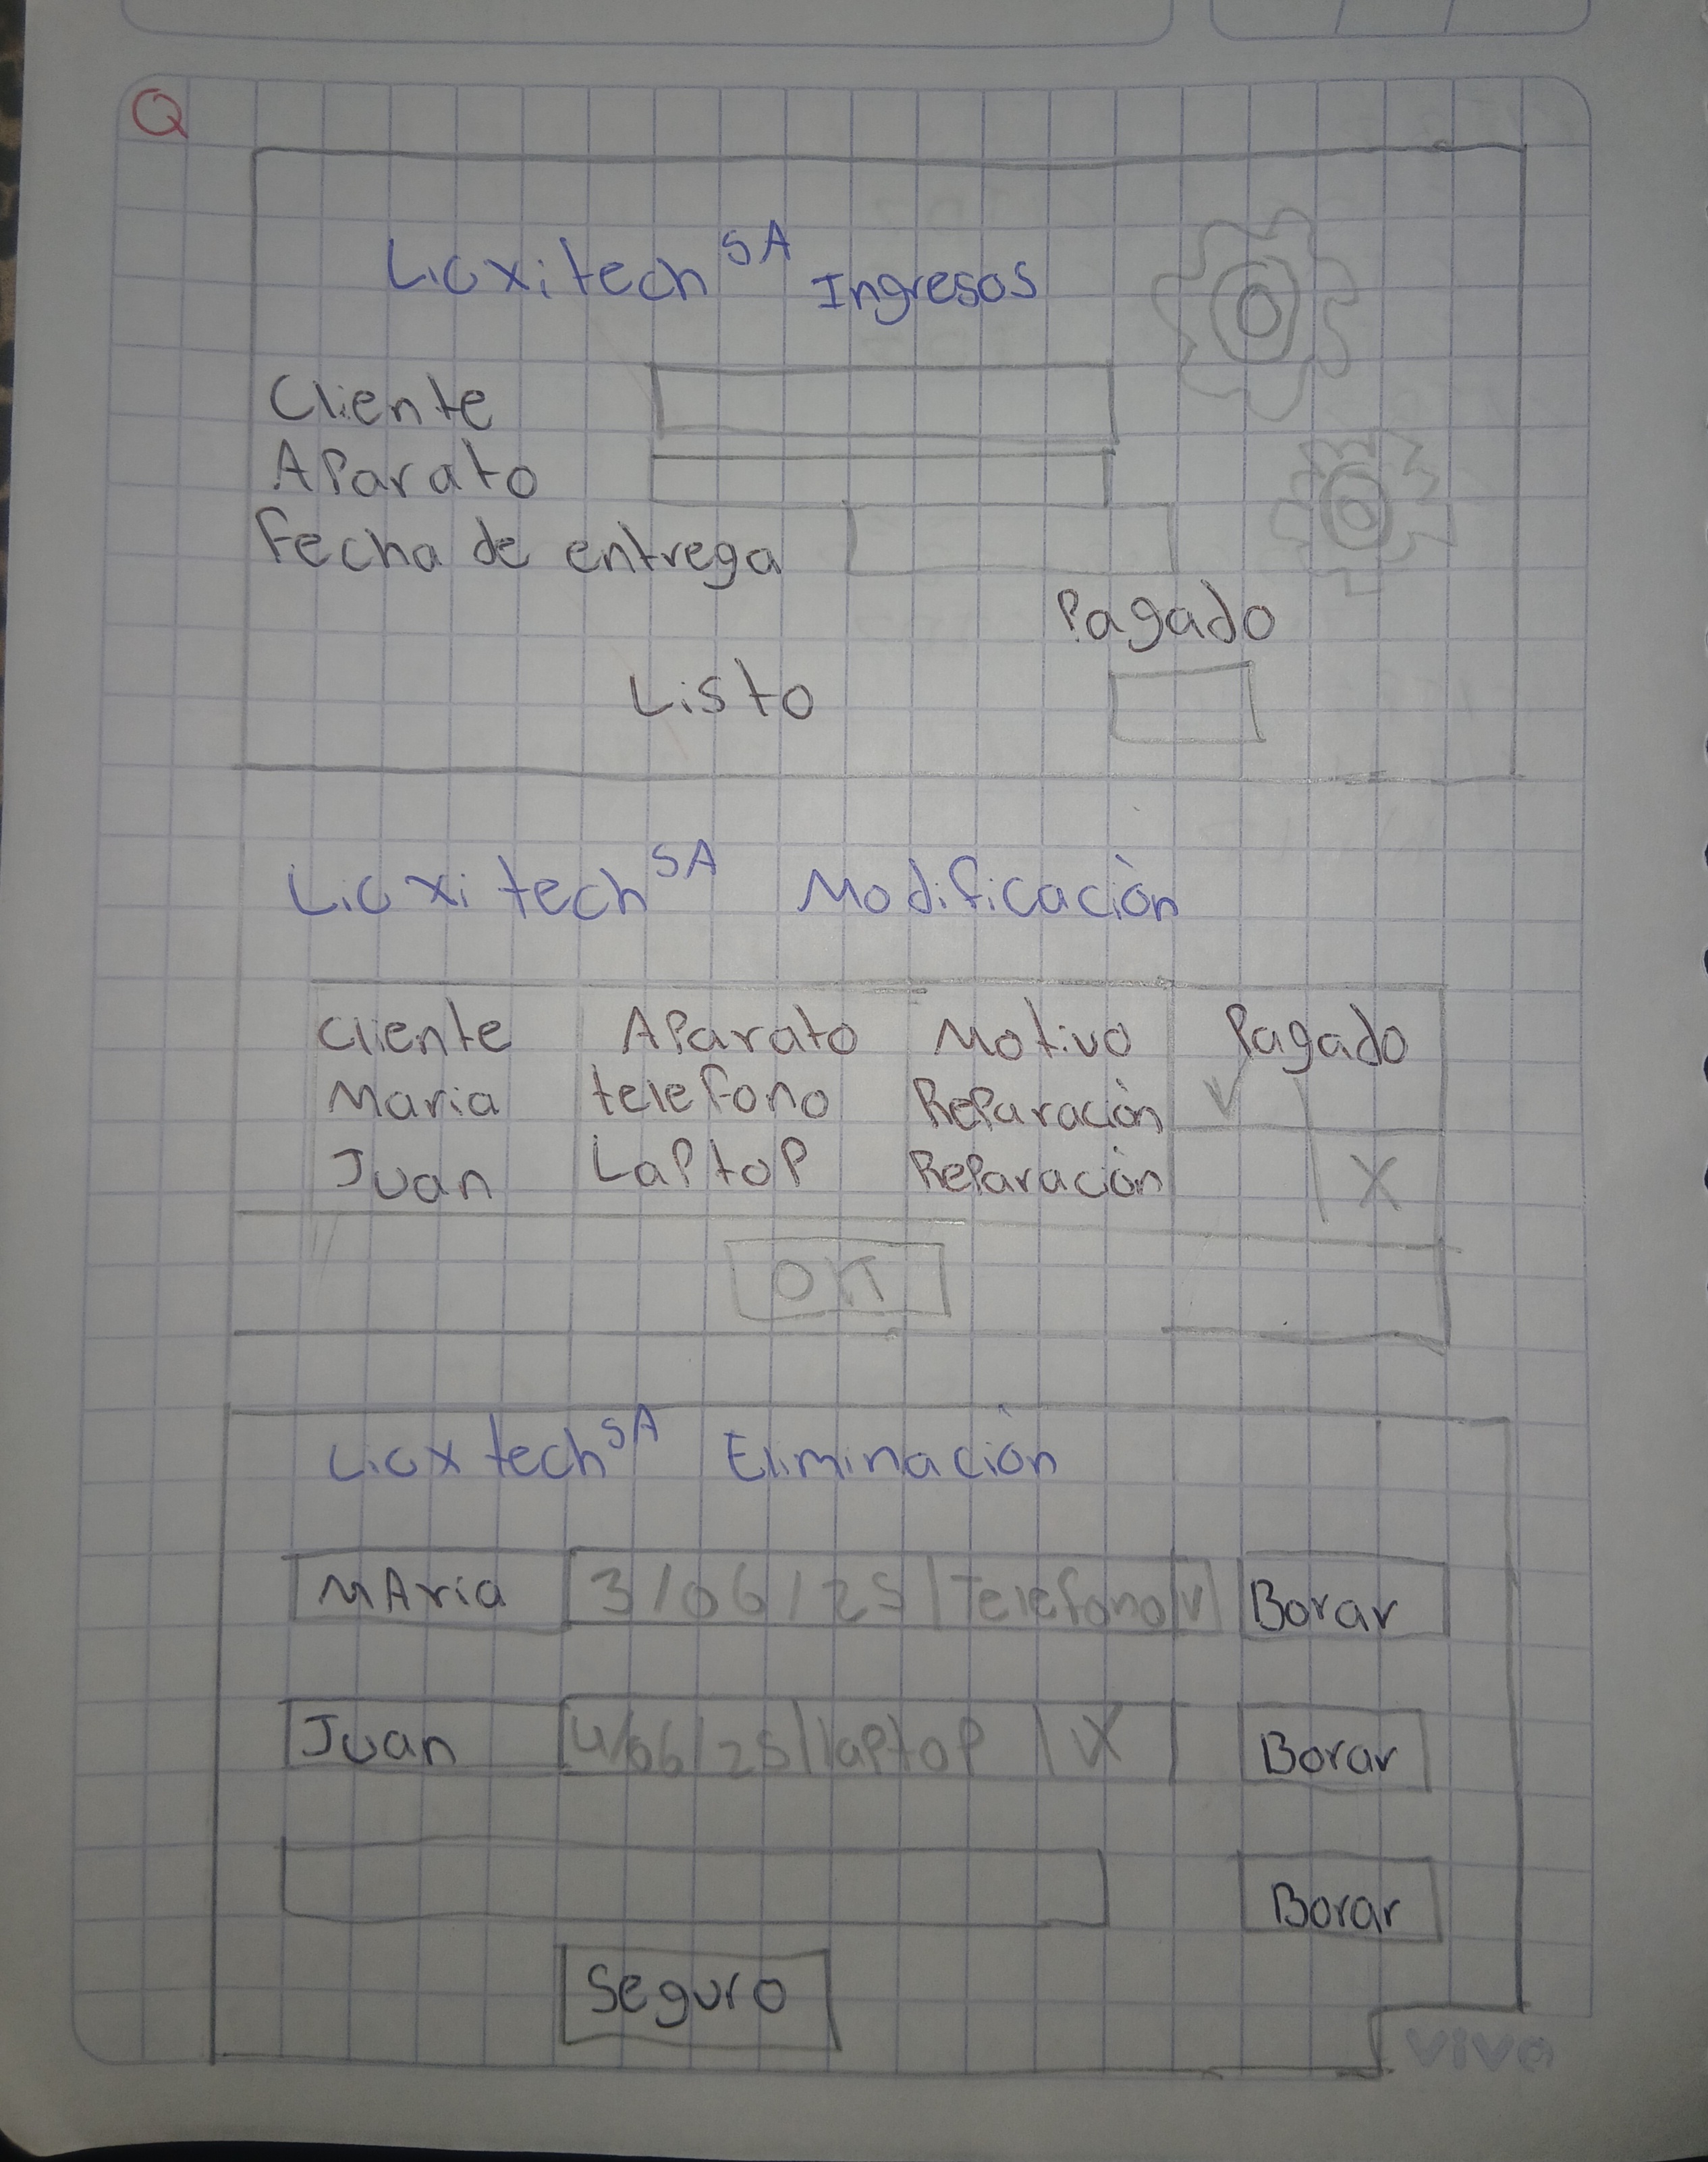 Q
Licxitech SA Ingresos
Cliente
Aparato
Fecha de entrega
Pagado
Listo
Licxitech SA Modificaciòn
Cliente Aparato Motivo Pagado
Maria telefono Reparaciòn V
Juan Laptop Reparaciòn X
OK
Licxtech SA Eliminaciòn
MAria 3/06/25 Telefono V Borar
Juan 4/06/25 laptop X Borar
Borar
Seguro
vivo